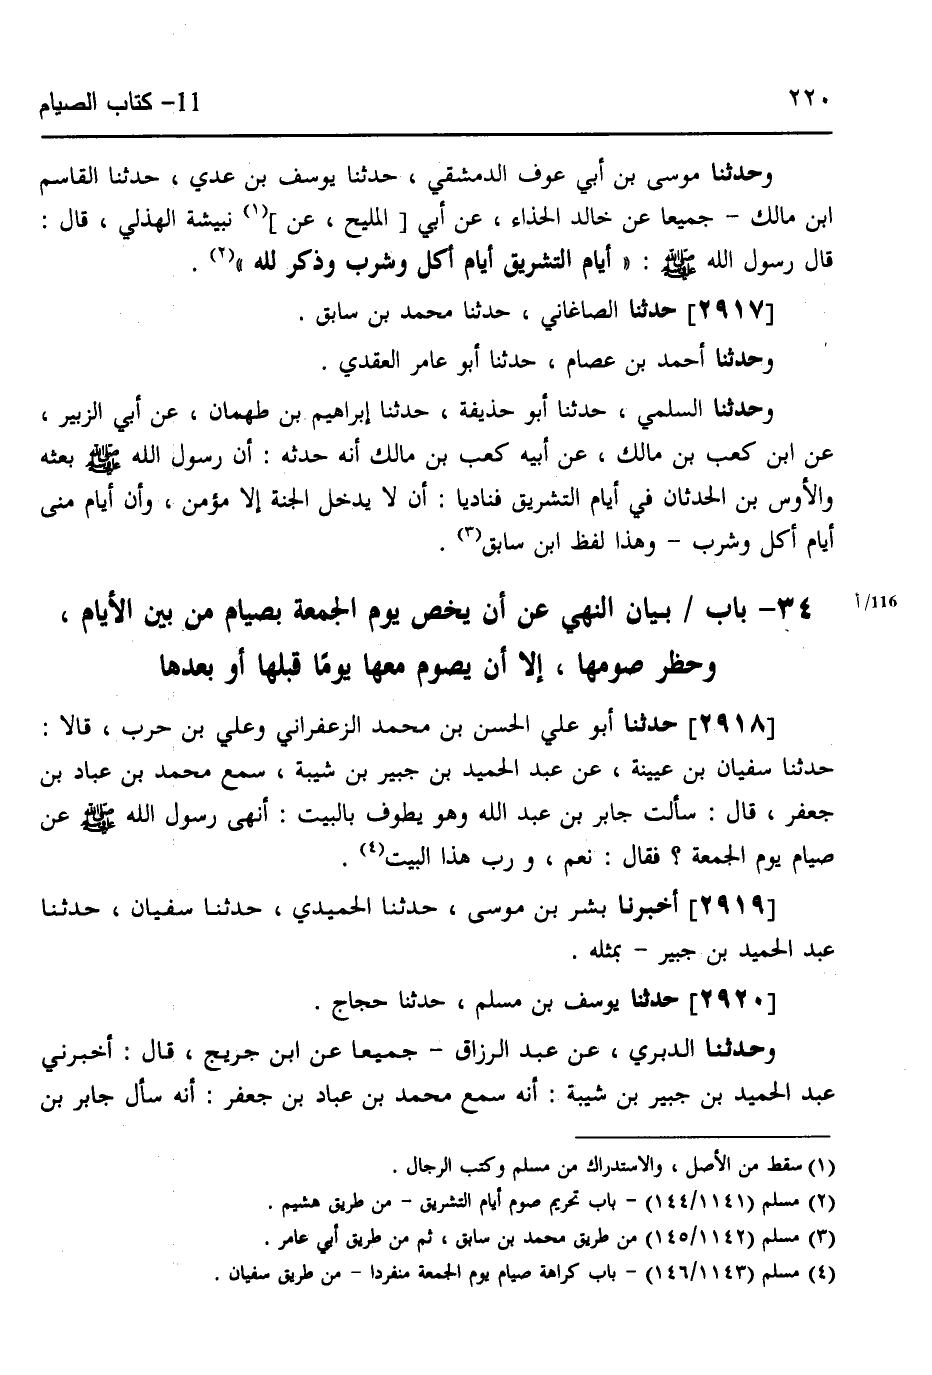 ٢٢٠
11- كتاب الصيام
وحدثنا موسى بن أبي عوف الدمشقي ، حدثنا يوسف بن عدي ، حدثنا القاسم
ابن مالك – جميعا عن خالد الحذاء ، عن أبي [ المليح ، عن ](١) نبيشة الهذلي ، قال :
قال رسول الله ﷺ : « أيام التشريق أيام أكل وشرب وذكر لله »(٢) .
[٢٩١٧] حدثنا الصاغاني ، حدثنا محمد بن سابق .
وحدثنا أحمد بن عصام ، حدثنا أبو عامر العقدي .
وحدثنا السلمي ، حدثنا أبو حذيفة ، حدثنا إبراهيم بن طهمان ، عن أبي الزبير ،
عن ابن كعب بن مالك ، عن أبيه كعب بن مالك أنه حدثه : أن رسول الله ﷺ بعثه
والأوس بن الحدثان في أيام التشريق فناديا : أن لا يدخل الجنة إلا مؤمن ، وأن أيام منى
أيام أكل وشرب – وهذا لفظ ابن سابق(٣) .
٣٤- باب / بيان النهي عن أن يخص يوم الجمعة بصيام من بين الأيام ،
116/أ
وحظر صومها ، إلا أن يصوم معها يومًا قبلها أو بعدها
[٢٩١٨] حدثنا أبو علي الحسن بن محمد الزعفراني وعلي بن حرب ، قالا :
حدثنا سفيان بن عيينة ، عن عبد الحميد بن جبير بن شيبة ، سمع محمد بن عباد بن
جعفر ، قال : سألت جابر بن عبد الله وهو يطوف بالبيت : أنهى رسول الله ﷺ عن
صيام يوم الجمعة ؟ فقال : نعم ، و رب هذا البيت(٤) .
[٢٩١٩] أخبرنا بشر بن موسى ، حدثنا الحميدي ، حدثنا سفيان ، حدثنا
عبد الحميد بن جبير – بمثله .
[٢٩٢٠] حدثنا يوسف بن مسلم ، حدثنا حجاج .
وحدثنا الدبري ، عن عبد الرزاق – جميعا عن ابن جريج ، قال : أخبرني
عبد الحميد بن جبير بن شيبة : أنه سمع محمد بن عباد بن جعفر : أنه سأل جابر بن
(١) سقط من الأصل ، والاستدراك من مسلم وكتب الرجال .
(٢) مسلم (١٤٤/١١٤١) – باب تحريم صوم أيام التشريق – من طريق هشيم .
(٣) مسلم (١٤٥/١١٤٢) من طريق محمد بن سابق ، ثم من طريق أبي عامر .
(٤) مسلم (١٤٦/١١٤٣) – باب كراهة صيام يوم الجمعة منفردا – من طريق سفيان .